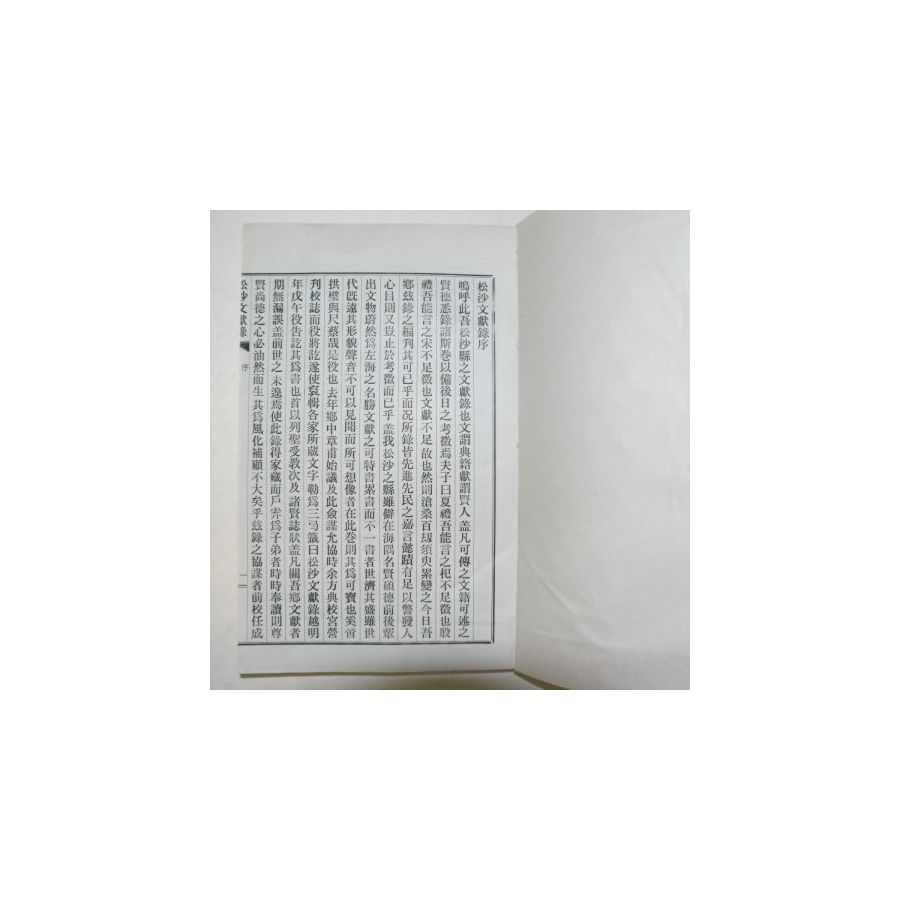 松沙文獻錄序
嗚呼此吾松沙縣之文獻錄也文謂典籍獻謂賢人盖凡可傳之文籍可述之
賢德悉錄諸斯卷以備後日之考徵焉夫子曰夏禮吾能言之杞不足徵也殷
禮吾能言之宋不足徵也文獻不足故也然則滄桑百劫須臾累變之今日吾
鄉玆錄之編刋其可已乎而况所錄皆先進先民之嘉言懿蹟有足以警發人
心目則又豈止於考徵而已乎盖我松沙之縣雖僻在海隅名賢碩德前後輩
出文物蔚然爲左海之名勝文獻之可特書累書而不一書者世濟其盛雖世
代旣遠其形貌聲音不可以見聞而所可想像者在此卷則其爲可寶也奚啻
拱璧與尺蔡哉是役也去年鄉中章甫始議及此僉謀允協時余方典校宮營
刋校誌而役將訖遂使裒輯各家所藏文字勒爲三弓籤曰松沙文獻錄越明
年戊午役告訖其爲書也首以列聖受敎次及諸賢誌狀盖凡關吾鄉文獻者
期無漏誤盖前世之未遑焉使此錄得家藏而戶弆爲子弟者時時奉讀則尊
賢尚德之心必油然而生其爲風化補顧不大矣乎玆錄之協謀者前校任成
松沙文獻錄 序 一